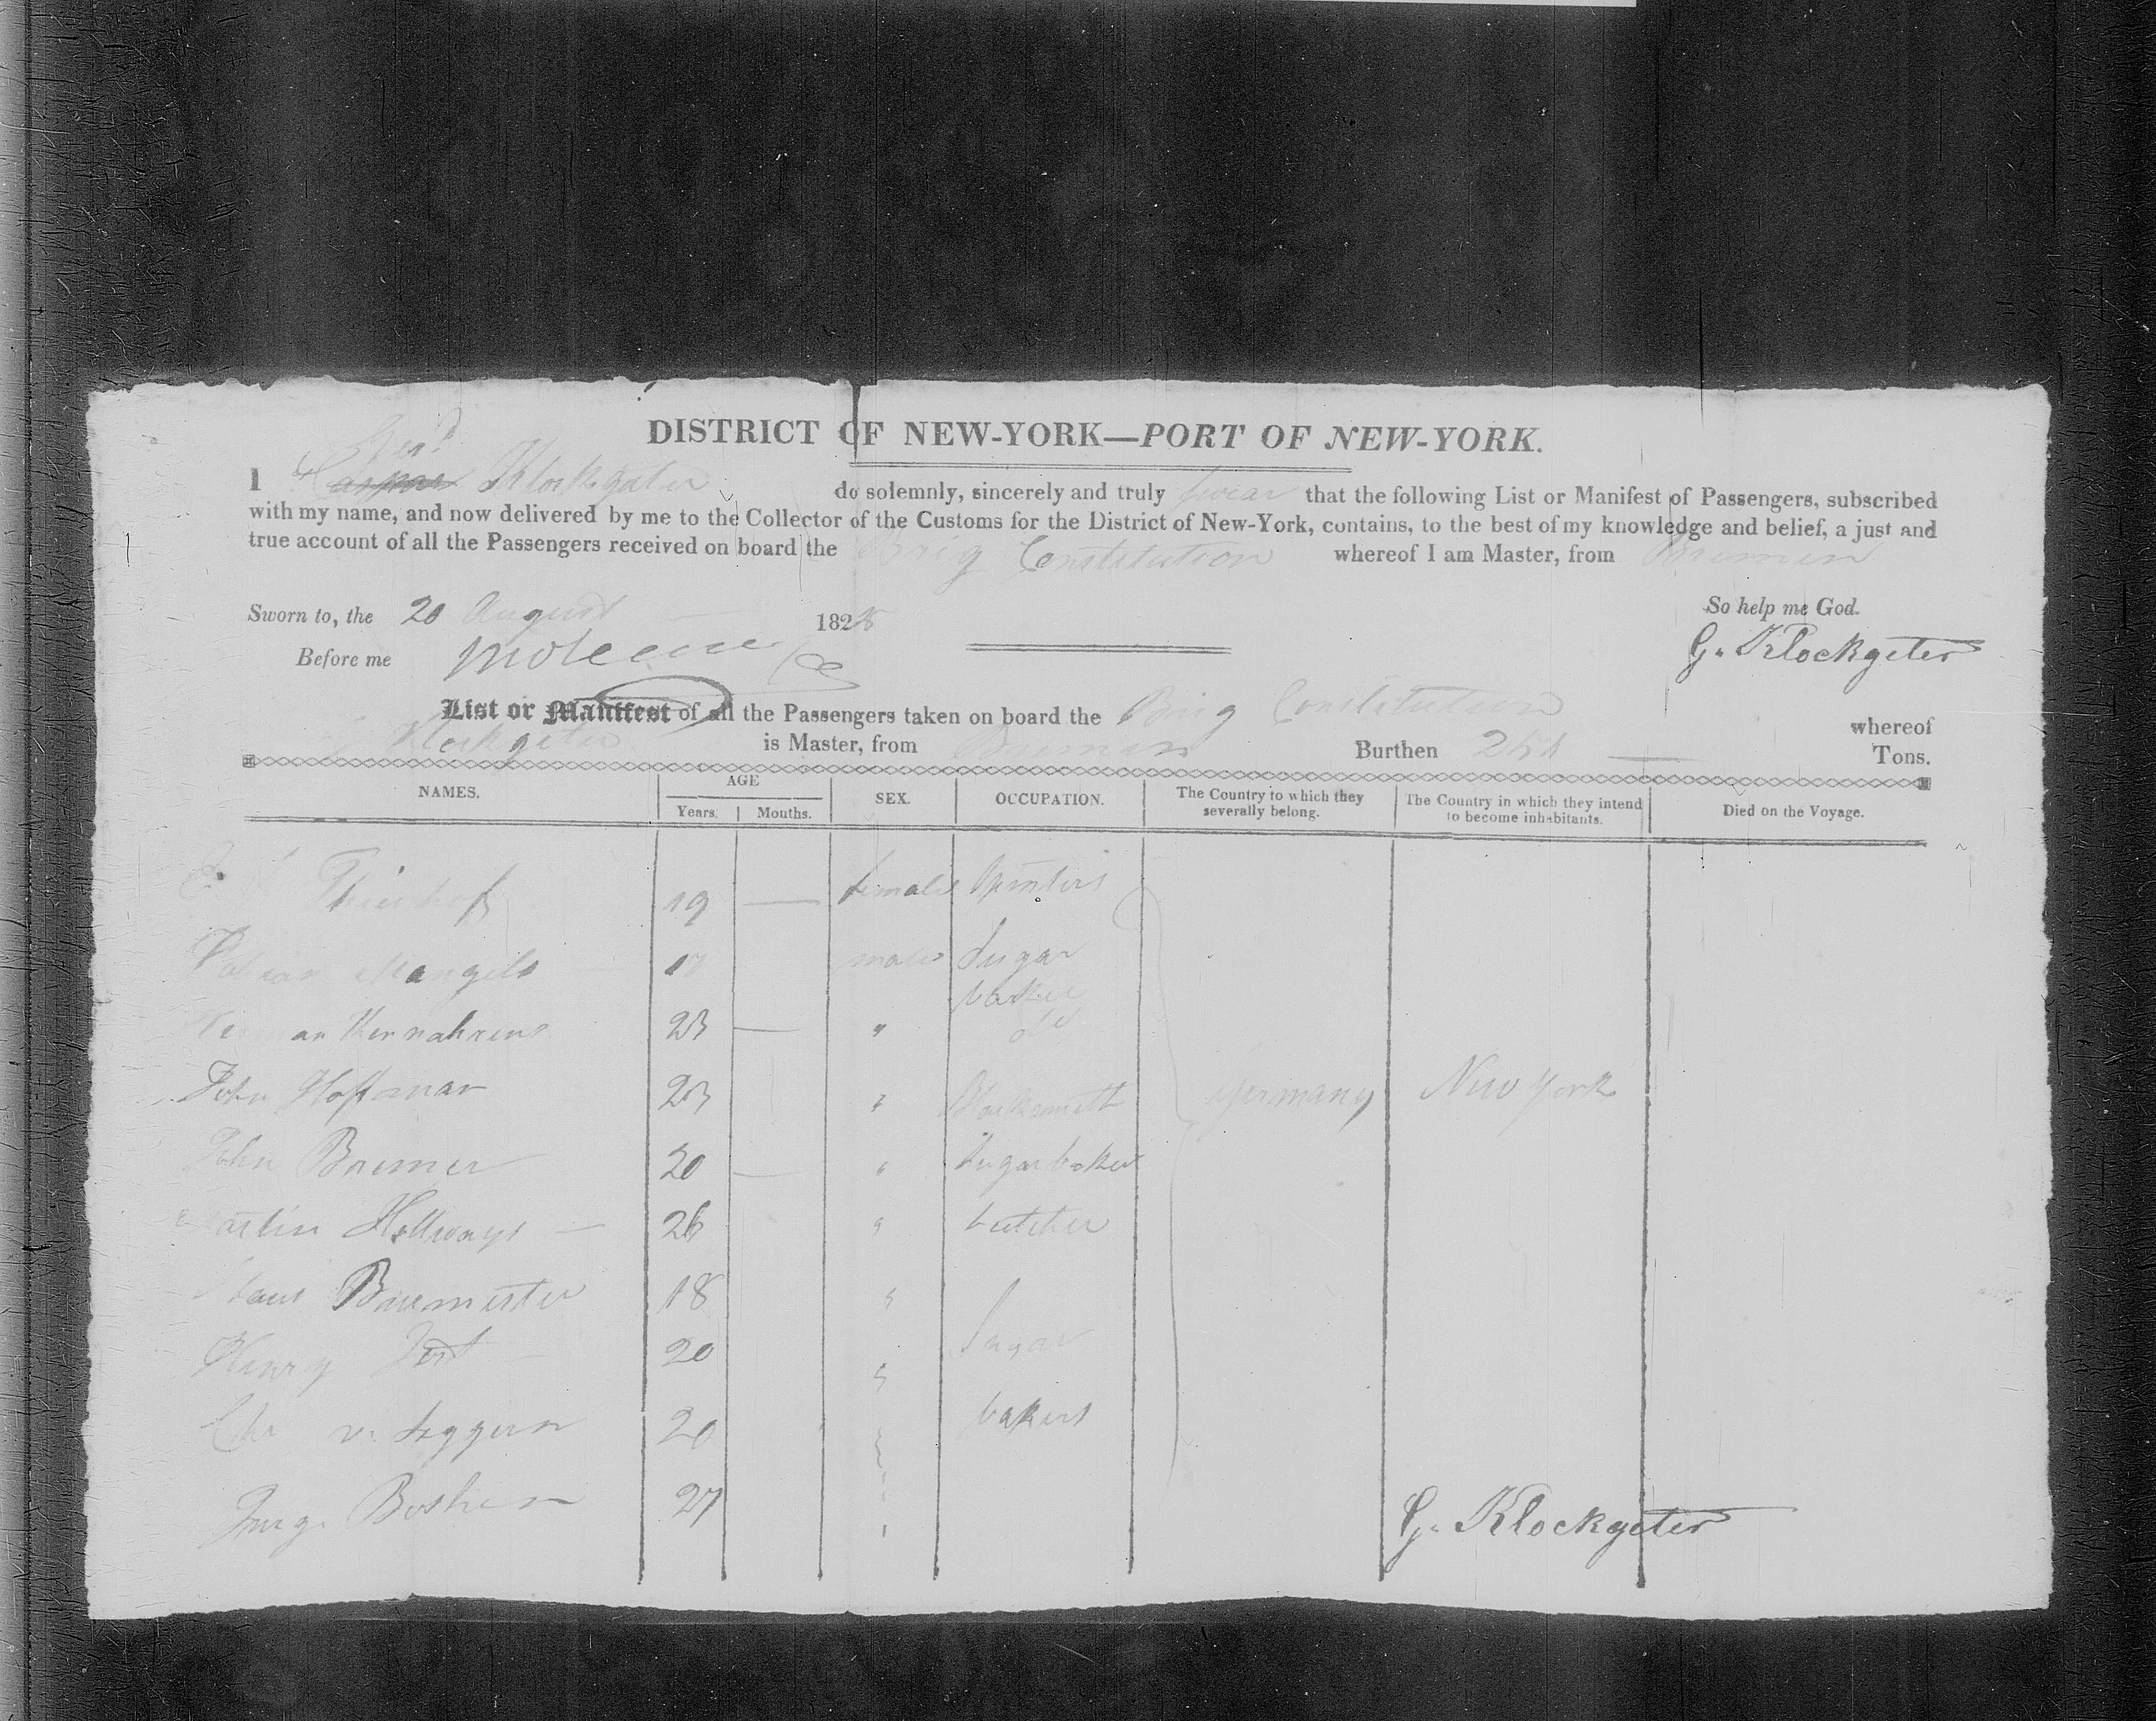 DISTRICT OF NEW-YORK—PORT OF NEW-YORK.
Gerd
I Klockgeter do solemnly, sincerely and truly swear that the following List or Manifest of Passengers, subscribed
with my name, and now delivered by me to the Collector of the Customs for the District of New-York, contains, to the best of my knowledge and belief, a just and
true account of all the Passengers received on board the Brig Constitution whereof I am Master, from Bremen
So help me God.
Sworn to, the 20 August 1828
G. Klockgeter
Before me
List or Manifest of all the Passengers taken on board the Brig Constitution whereof
Klockgeter is Master, from Bremen Burthen Tons.
NAMES. AGE SEX. OCCUPATION. The Country to which they severally belong. The Country in which they intend to become inhabitants. Died on the Voyage.
Years. Months.
19 — female Spinster
Mangels male Sugar
baker
23 — " do
John Hoffman 23 " Blacksmith Germany New York
John Bremer 20 — " Sugarbaker
Martin Hollways — 26 " butcher
Claus Burmester 18 "
Henry 20 " Sugar
Chr v. Seggern 20 " bakers
Boshen 27 "
G. Klockgeter